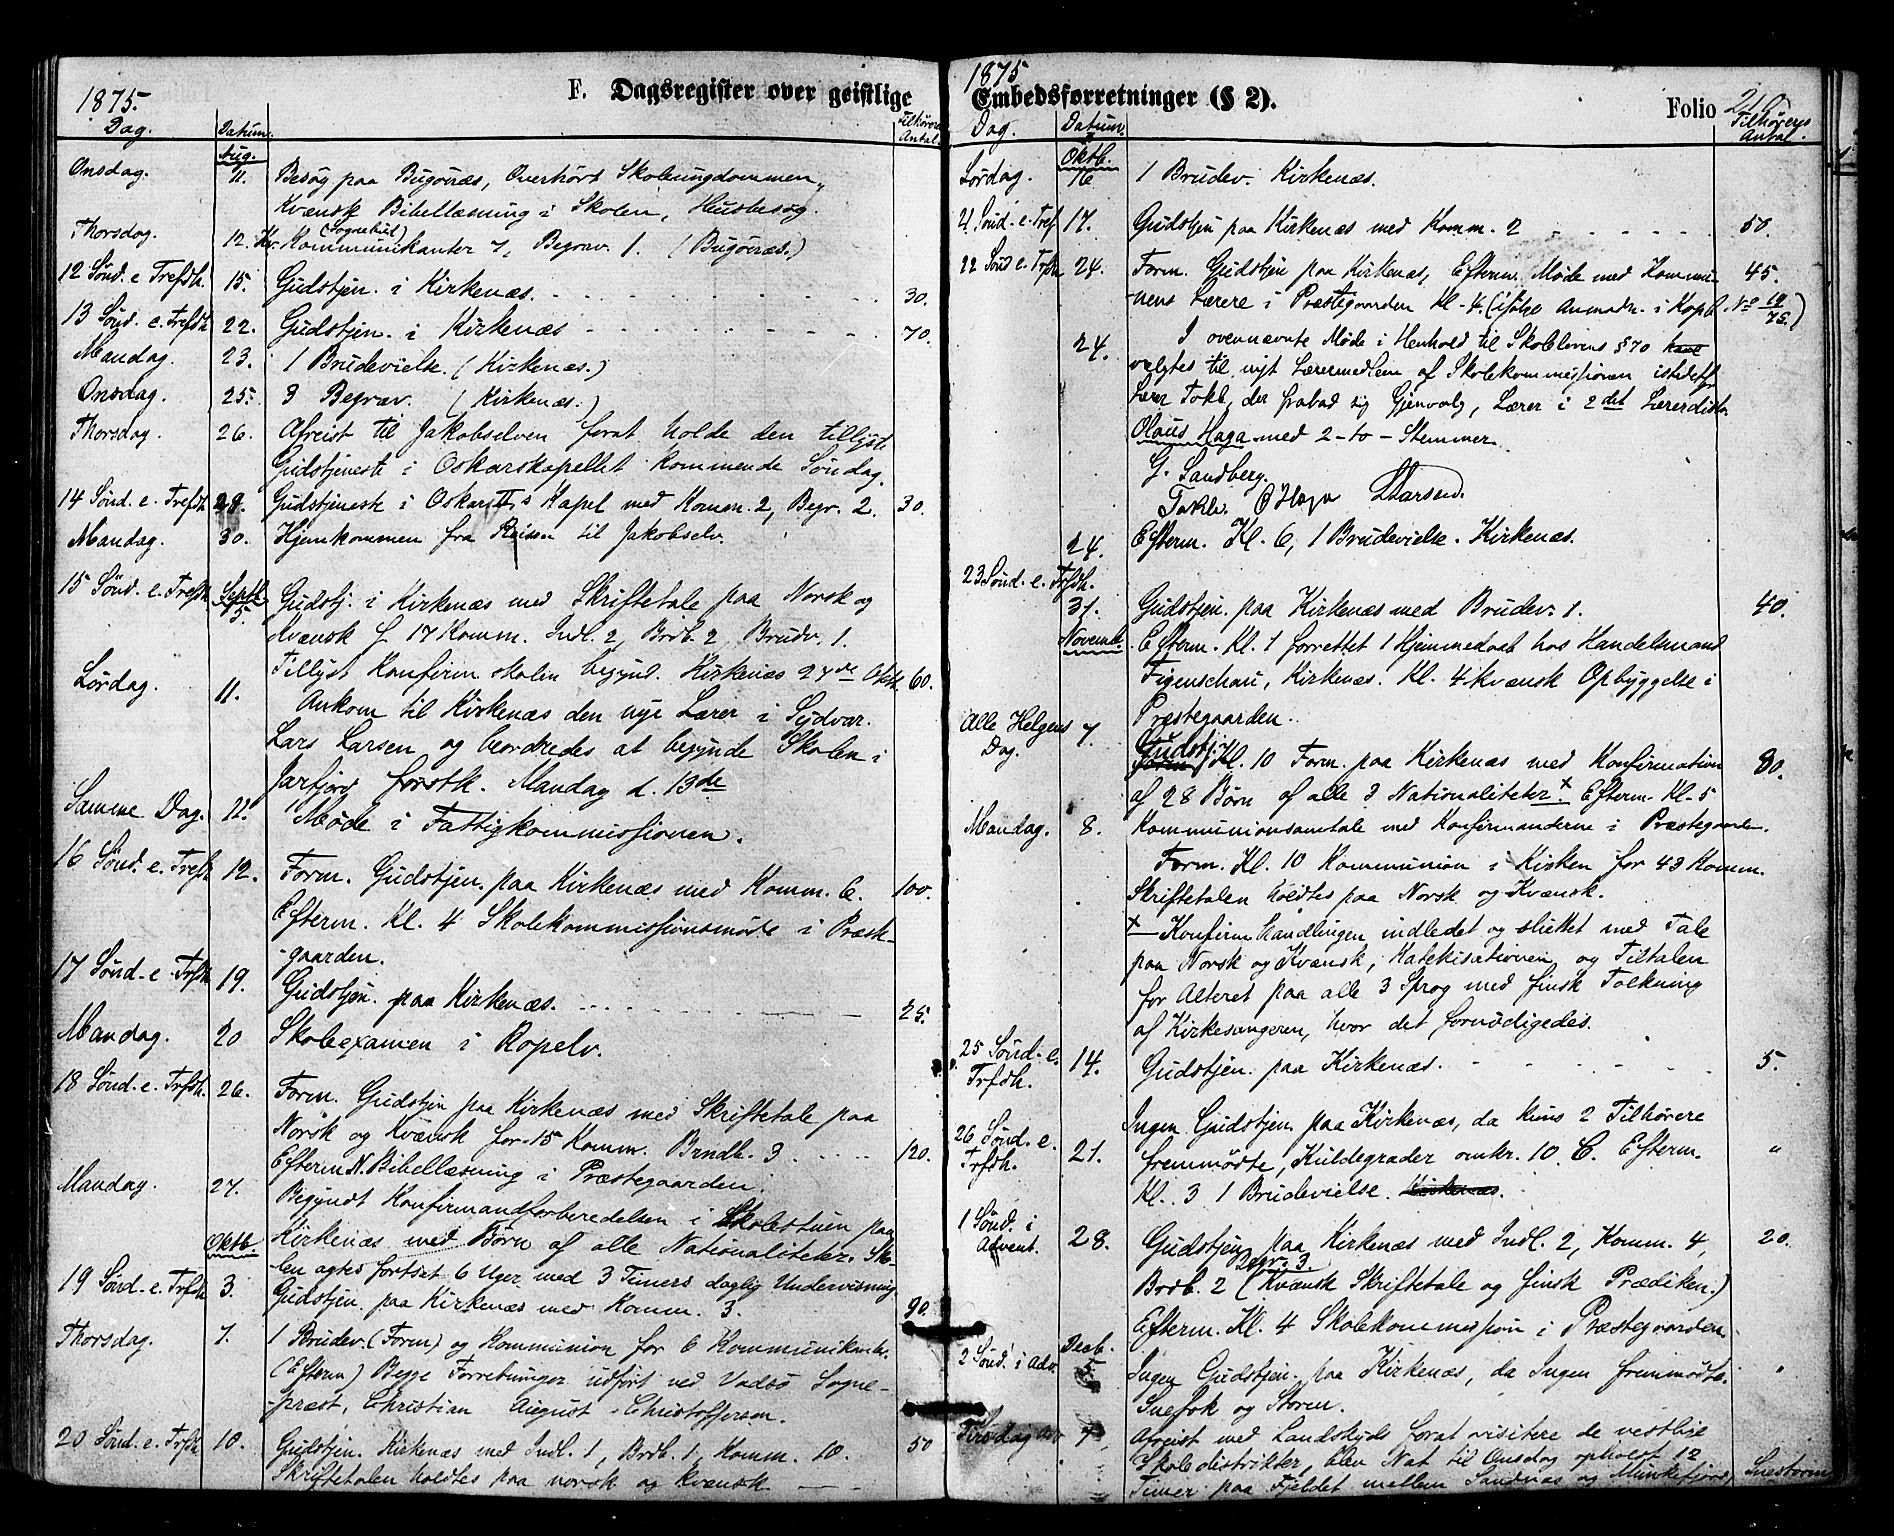 F. Dagsregister over geistlige
1875.
Dag.
Datum.
Tilhørere
Antal.
Aug.
Onsdag. 11. Besøg paa Bugønæs, Overhørt Skoleungdommen,
Kvænsk Bibellæsning i Skolen, Husbesøg.
(Sognebud)
Thorsdag. 12. Kommunikanter 7, Begrav. 1. (Bugønæs.)
12 Sønd. e Trefdh. 15. Gudstjen. i Kirkenæs. 30.
13 Sønd. e. Trefdh. 22. Gudstjen. i Kirkenæs 70.
Mandag. 23. 1 Brudevielse. (Kirkenæs.)
Onsdag. 25. 3 Begrav. (Kirkenæs.)
Thorsdag. 26. Afreist til Jakobselven forat holde den tillyste
Gudstjeneste i Oskarskapellet kommende Søndag.
14 Sønd. e. Trefdh. 29. Gudstjeneste i Oskar IIs Kapel med Komm. 2, Begr. 2. 30.
Mandag. 30. Hjemkommen fra Reisen til Jakobselv.
15 Sønd. e. Trefdh. Septb. 5. Gudstj. i Kirkenæs med Skriftetale paa Norsk og
Kvænsk f. 17 Komm. Indl. 2, Brdb. 2, Brudv. 1.
Tillyst Konfirm. skolen begynd. Kirkenæs 27de 60.
Lørdag. 11. Ankom til Kirkenæs den nye Lærer i Sydvar.
Lars Larsen og beordredes at begynde Skolen i
Jarfjord førstk. Mandag d. 13de
Samme Dag. 11. Møde i Fattigkommissionen.
16 Sønd. e. Trefdh 12. Form. Gudstjen. paa Kirkenæs med Komm. 6. 100.
Efterm. Kl. 4 Skolekommissionsmøde i Præste-
-gaarden.
17 Sønd. e. Trfdh 19. Gudstjen. paa Kirkenæs. 25.
Mandag. 20 Skoleexamen i Ropelv.
18 Sønd. e. Trfdh. 26. Form. Gudstjen paa Kirkenæs med Skriftetale paa
Norsk og Kvænsk for 15 Komm. Brndb. 3 120.
Efterm N. Bibellæsning i Præstegaarden.
Mandag. 27. Begyndt Konfirmandforberedelsen i Skolestuen paa
Kirkenæs med Børn af alle Nationaliteter. Sko-
Oktb.
len agtes fortsat 6 Uger med 3 Timers daglig Undervisning
19 Sønd. e. Trfdh 3. Gudstjen. paa Kirkenæs med Komm. 3. 90.
Thorsdag. 7. 1 Brudev. (Form) og Kommunion for 6 Kommunikanter.
(Efterm) Begge Forretninger udført ved Vadsø Sogne-
-præst, Christian August Christoffersen.
20 Sønd. e. Trfdh 10. Gudstjen. Kirkenæs med Indl. 1, Brdb. 1, Komm. 10. 50
Skriftetalen holdtes paa norsk og kvænsk
1875
Embedsforretninger (§ 2).
Folio 210.
Dag.
Datum.
Tilhøreres
Antal.
Oktb.
Lørdag. 16 1 Brudev. Kirkenæs.
21 Sønd. e. Tref 17. Gudstjen paa Kirkenæs med Komm. 2 50.
22 Sønd e. Trfdh 24. Form. Gudstjen paa Kirkenæs, Efterm. Møde med Kommu- 45.
-nens Lærere i Præstegaarden Kl. 4. (ifølge Anmodn. i Kopb. No 19/75.)
24. I ovennævnte Møde i Henhold til Skolelovens § 70
valgtes til nyt Lærermedlem af Skolekommissionen istedetfor
Lærer Takle, der frabad sig Gjenvalg, Lærer i 2det Lærerdistr.
Olaus Haga med 2 - to - Stemmer
G. Sandberg.
Takle. O Haga LLarsen.
24. Efterm. Kl. 6, 1 Brudevielse. Kirkenæs.
23 Sønd. e. Trfdh.
31. Gudstjen. paa Kirkenæs med Brudev. 1. 40.
Novemb. Efterm. Kl. 1 forrettet 1 Hjemmedaab hos Handelsmand
Figenschau, Kirkenæs. Kl. 4 kvænsk Opbyggelse i
Præstegaarden.
Alle Helgens Dag. 7. Gudstj. Kl. 10 Form. paa Kirkenæs med Konfirmation 80.
af 28 Børn af alle 3 Nationaliteter. x Efterm. Kl. 5
Kommunionsamtale med Konfirmanderne i Præstegaarden.
Mandag. 8. Form. Kl. 10 Kommunion i Kirken for 43 Komm.
Skriftetalen holdtes paa Norsk og Kvænsk.
x Konfirm handlingen indledet og sluttet med Tale
paa Norsk og Kvænsk, Katekisationen og Tiltalen
for Alteret paa alle 3 Sprog med finsk Tolkning
af Kirkesangeren, hvor det fornødigedes.
25 Sønd. e. Trfdh. 14. Gudstjen. paa Kirkenæs. 5.
26 Sønd. e. Trfdh. 21. Ingen Gudstjen. paa Kirkenæs, da kuns 2 Tilhørere
fremmødte, Kuldegrader omkr. 10. C. Efterm. "
Kl. 3 1 Brudevielse. Kirkenæs.
1 Sønd. i Advent. 28. Gudstjen paa Kirkenæs med Indl. 2, Komm. 4, 20.
Begr. 3
Brdb. 2 (Kvænsk Skriftetale og finsk Prædiken.)
Efterm. Kl. 4 Skolekommission i Præstegaarden
Decb.
2 Sønd. i Adv. 5. Ingen Gudstjen. paa Kirkenæs, da Ingen fremmødte. "
Snefok og Storm.
Tirsdag 7. Afreist med Landskyds forat visitere de vestlige
Skoledistrikter, blev Nat til Onsdag opholdt 12
Timer paa Fjeldet mellem Sandnæs og Munkefjord, Snestorm